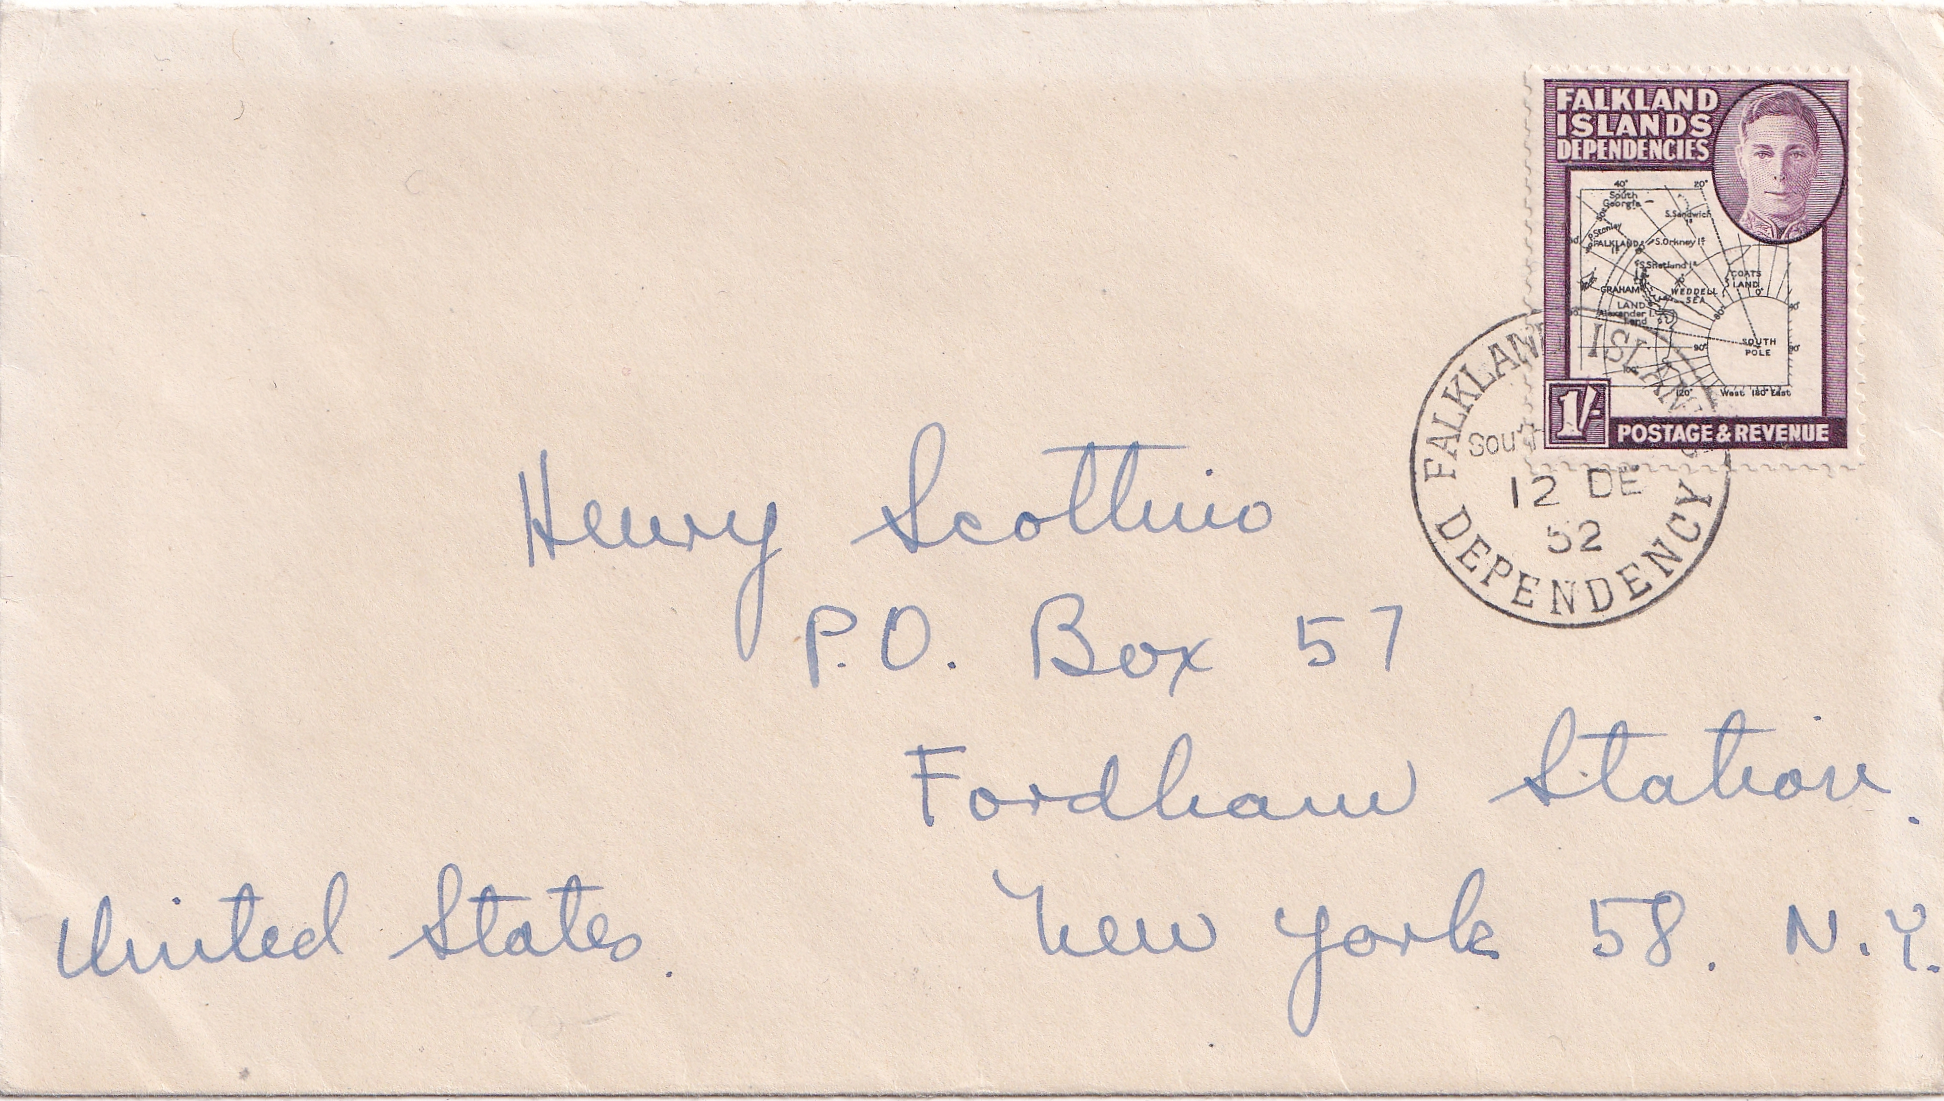 FALKLAND
ISLANDS
DEPENDENCIES
40° 20°
South
Georgia
S. Sandwich
Is
P. Stanley
FALKLAND
Is
S. Orkney Is
S. Shetland Is
COATS
LAND
GRAHAM
LAND
WEDDELL
SEA
0°
Alexander I.
Land
90°
SOUTH
POLE
120° West 180° East
1/-
POSTAGE & REVENUE
FALKLAND ISLANDS
South
12 DE
52
DEPENDENCY
Henry Scottino
P.O. Box 57
Fordham Station.
United States. New York 58. N.Y.